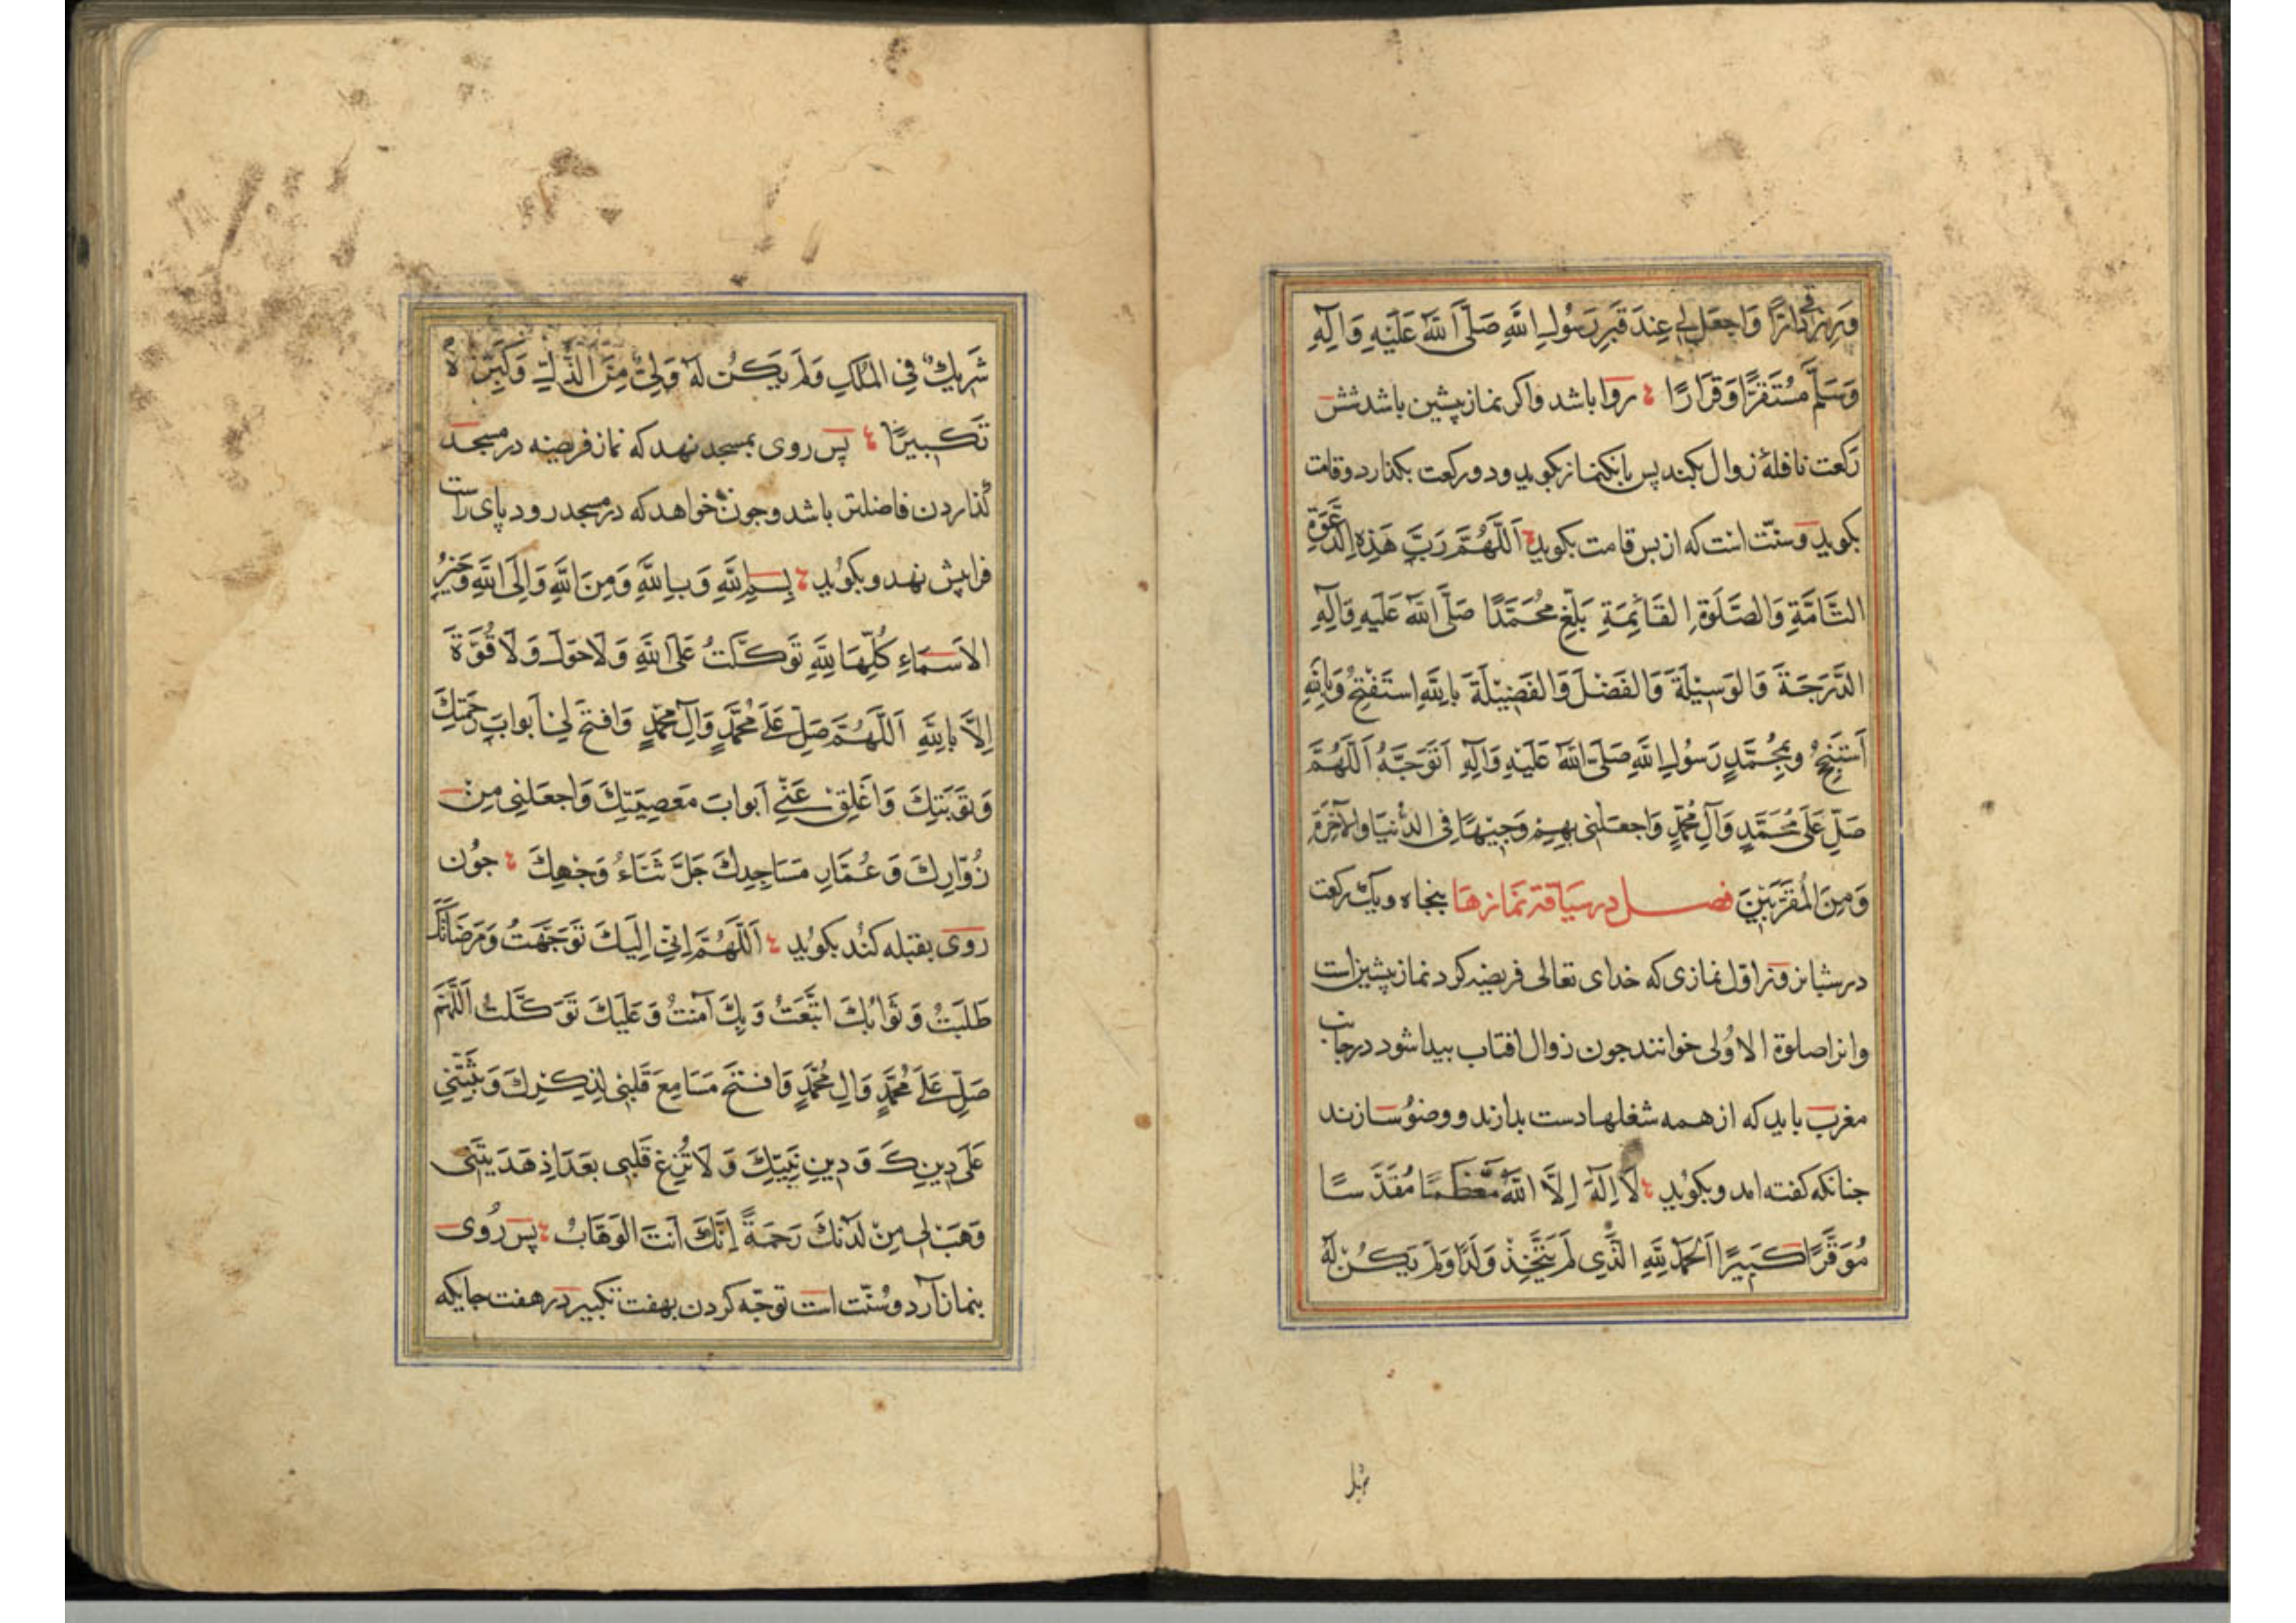 وَرِزقی دَارًّا وَاجعَل لِی عِندَ قَبرِ رَسُولِ اللَّهِ صَلَّی اللَّهُ عَلَیهِ وَآلِهِ
وَسَلَّم مُستَقَرًّا وَقَرَارًا روا باشد واکر نماز پیشین باشد شش
رکعت نافلۀ زوال بکند پس بانکنماز بکوید ودو رکعت بکذارد وقامت
بکوید وسنّت انست که از بس قامت بکوید اَللَّهُمَّ رَبَّ هَذِهِ الدَّعوَةِ
التَّامَّةِ وَالصَّلَوةِ القَائِمَةِ بَلِّغ مُحَمَّدًا صَلَّی اللَّهُ عَلَیهِ وَآلِهِ
الدَّرَجَةَ وَالوَسِیلَةَ وَالفَضلَ وَالفَضِیلَةَ بِاللَّهِ اَستَفتِحُ وَبِاللَّهِ
اَستَنجِحُ وَبِمُحَمَّدٍ رَسُولِ اللَّهِ صَلَّی اللَّهُ عَلَیهِ وَآلِهِ اَتَوَجَّهُ اَللَّهُمَّ
صَلِّ عَلَی مُحَمَّدٍ وَآلِ مُحَمَّدٍ وَاجعَلنِی بِهِم وَجِیهًا فِی الدُّنیَا وَالآخِرَةِ
وَمِنَ المُقَرَّبِینَ فصل در سیاقة نمازها بنجاه ویک رکعت
در شبانروز اوّل نمازی که خدای تعالی فریضه کرد نماز پیشین است
وانرا صلوة الاُولی خوانند جون زوال افتاب بیدا شود در جانب
مغرب باید که از همه شغلها دست بدارند ووضو سازند
جنانکه کفته امد وبکوید لَا اِلَهَ اِلَّا اللَّهُ مُعَظَّمًا مُقَدَّسًا
مُوَقَّرًا کَبِیرًا اَلحَمدُ لِلَّهِ الَّذِی لَم یَتَّخِذ وَلَدًا وَلَم یَکُن لَهُ
شَرِیكٌ فِی المُلكِ وَلَم یَکُن لَهُ وَلِیٌّ مِنَ الذُّلِّ وَکَبِّرهُ
تَکبِیرًا پس روی بمسجد نهد که نماز فریضه در مسجد
کذاردن فاضلتر باشد وجون خواهد که در مسجد رود پای راست
فرا پیش نهد وبکوید بِسمِ اللَّهِ وَبِاللَّهِ وَمِنَ اللَّهِ وَاِلَی اللَّهِ وَخَیرُ
الاَسمَاءِ کُلِّهَا لِلَّهِ تَوَکَّلتُ عَلَی اللَّهِ وَلَا حَولَ وَلَا قُوَّةَ
اِلَّا بِاللَّهِ اَللَّهُمَّ صَلِّ عَلَی مُحَمَّدٍ وَآلِ مُحَمَّدٍ وَافتَح لِی اَبوابَ رَحمَتِكَ
وَتَوبَتِكَ وَاَغلِق عَنِّی اَبوابَ مَعصِیَتِكَ وَاجعَلنِی مِن
زُوَّارِكَ وَعُمَّارِ مَسَاجِدِكَ جَلَّ ثَنَاءُ وَجهِكَ جون
روی بقبله کند بکوید اَللَّهُمَّ اِنِّی اِلَیكَ تَوَجَّهتُ وَمَرضَاتَكَ
طَلَبتُ وَثَوابَكَ ابتَغَیتُ وَبِكَ آمَنتُ وَعَلَیكَ تَوَکَّلتُ اَللَّهُمَّ
صَلِّ عَلَی مُحَمَّدٍ وَآلِ مُحَمَّدٍ وَافتَح مَسَامِعَ قَلبِی لِذِکرِكَ وَثَبِّتنِی
عَلَی دِینِكَ وَدِینِ نَبِیِّكَ وَلَا تُزِغ قَلبِی بَعدَ اِذ هَدَیتَنِی
وَهَب لِی مِن لَدُنكَ رَحمَةً اِنَّكَ اَنتَ الوَهَّابُ پس رُوی
بنماز آرد وسُنّت است توجّه کردن بهفت تکبیر در هفت جایکه